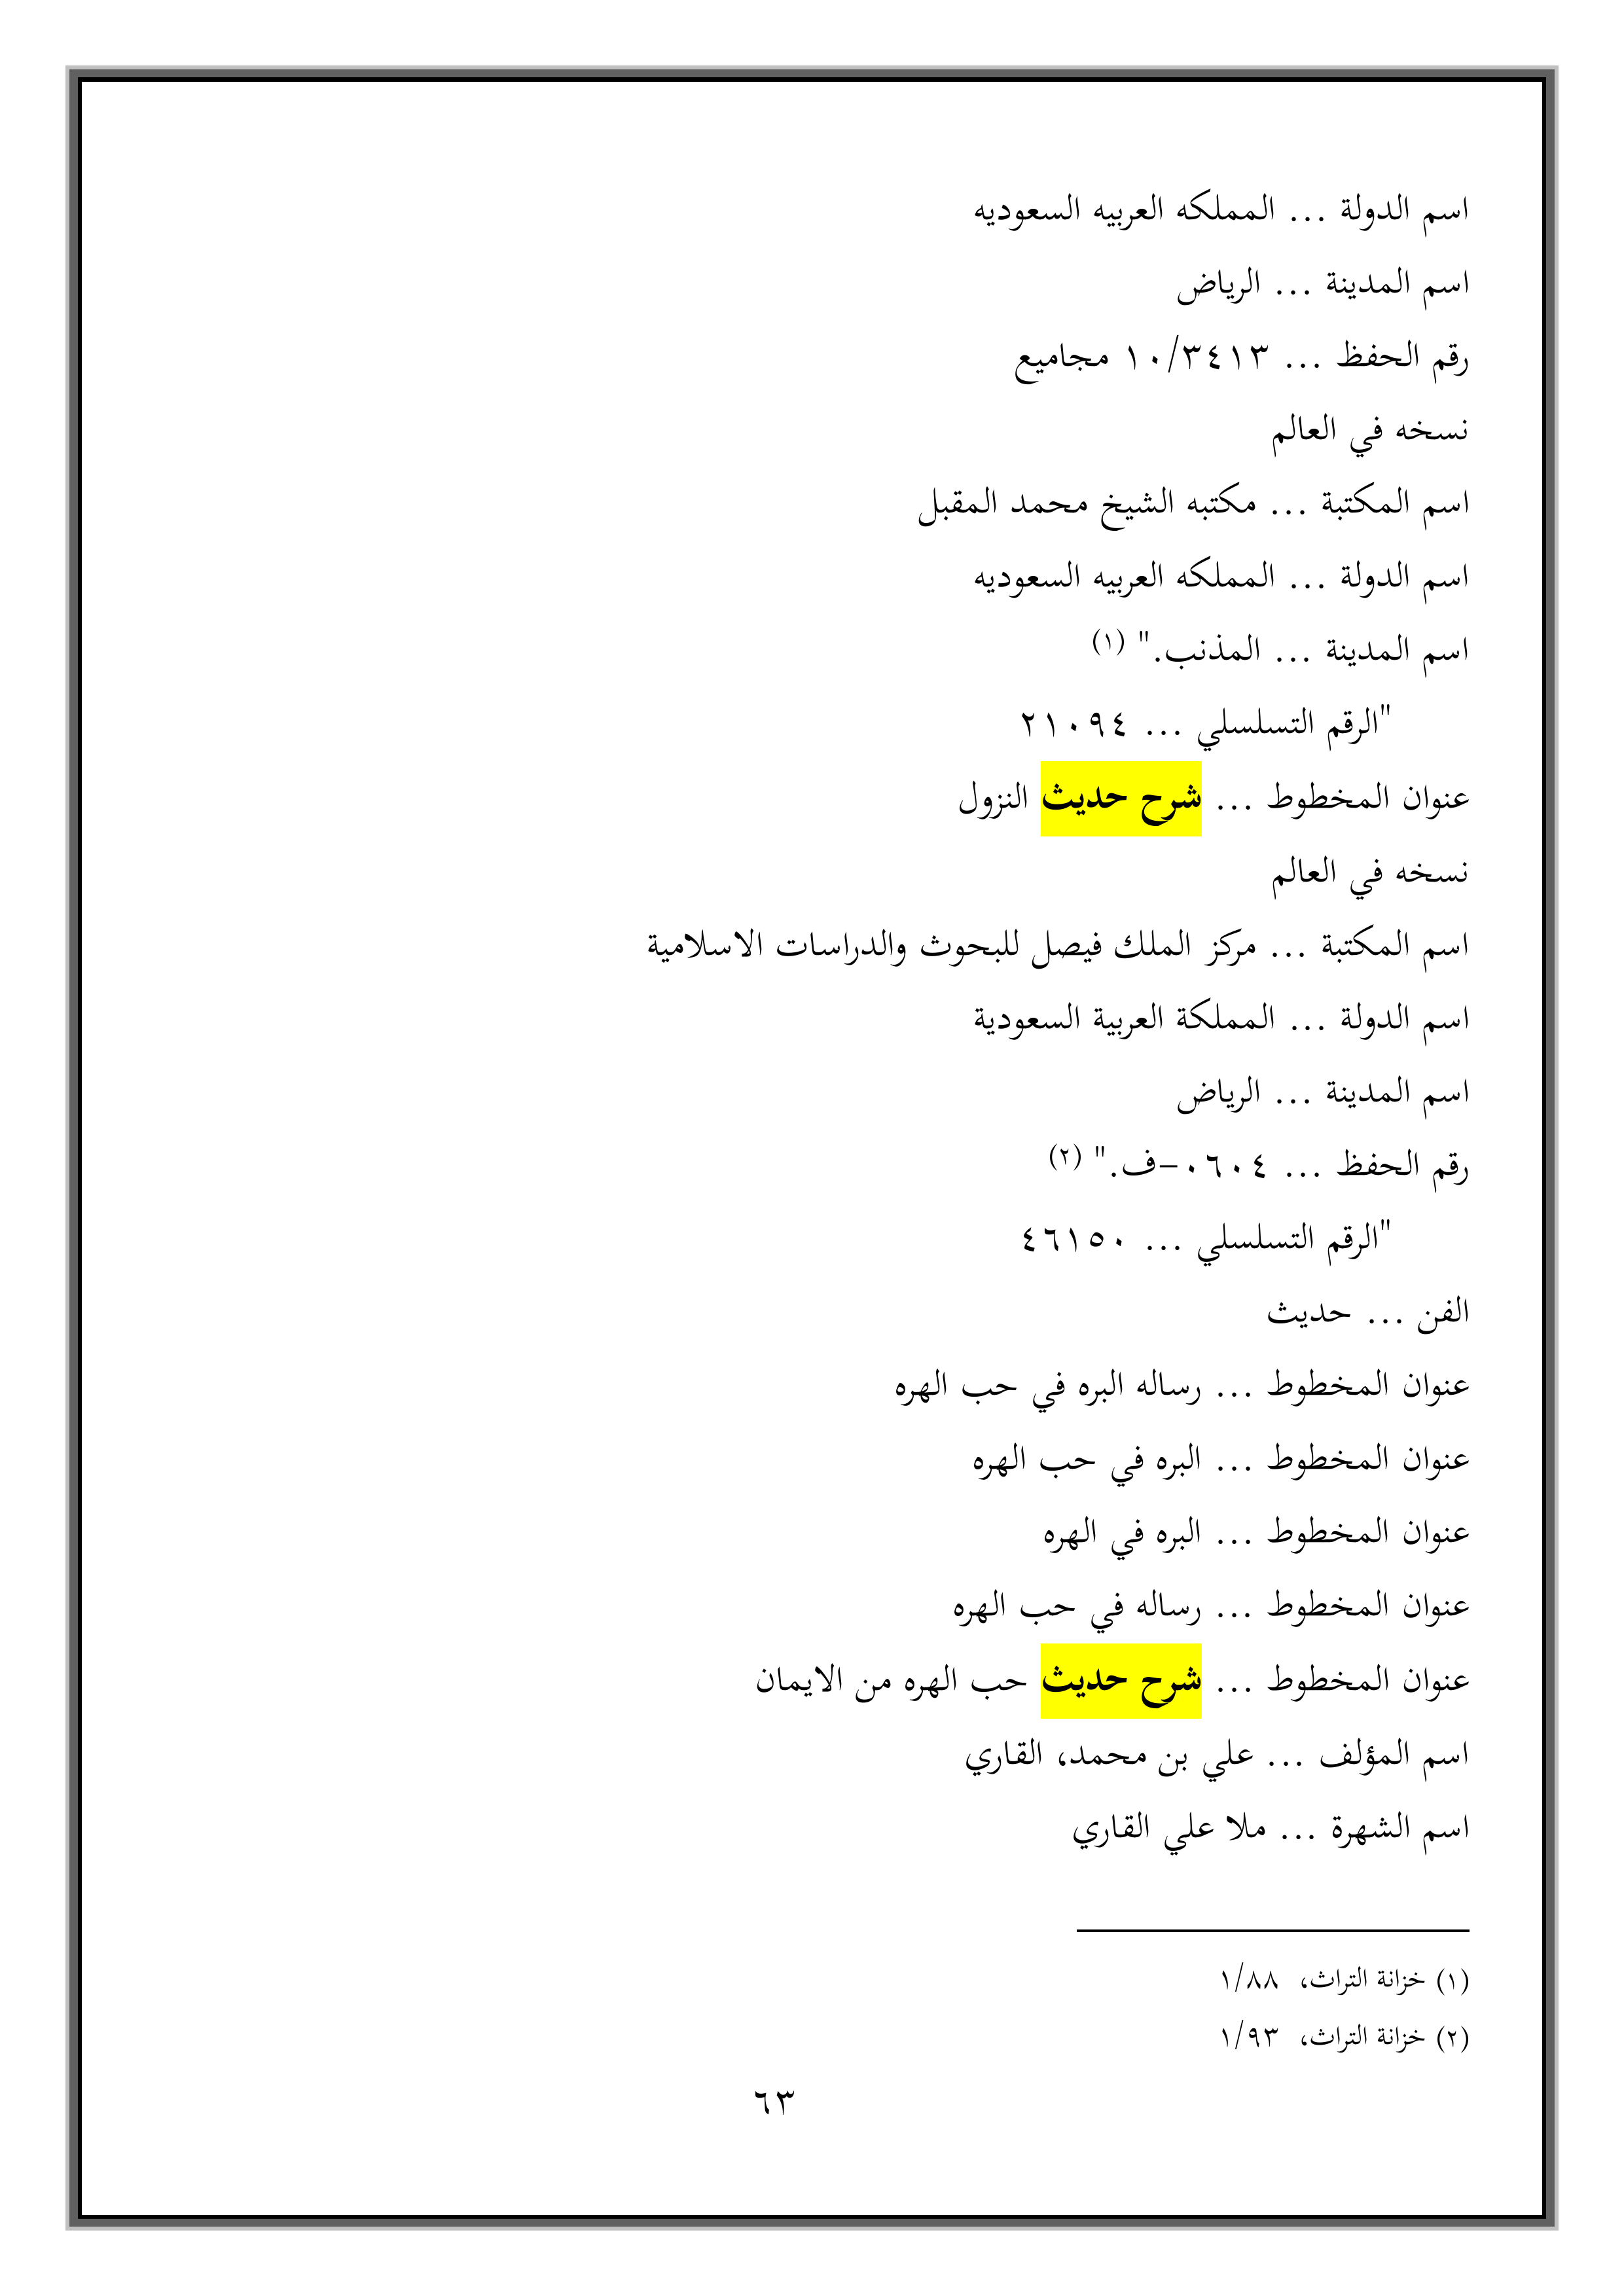 اسم الدولة ... المملكه العربيه السعوديه
اسم المدينة ... الرياض
رقم الحفظ ... ١٠/٣٤١٣ مجاميع
نسخه في العالم
اسم المكتبة ... مكتبه الشيخ محمد المقبل
اسم الدولة ... المملكه العربيه السعوديه
اسم المدينة ... المذنب." (١)
"الرقم التسلسلي ... ٢١٠٩٤
عنوان المخطوط ... شرح حديث النزول
نسخه في العالم
اسم المكتبة ... مركز الملك فيصل للبحوث والدراسات الاسلامية
اسم الدولة ... المملكة العربية السعودية
اسم المدينة ... الرياض
رقم الحفظ ... ٠٦٠٤-ف." (٢)
"الرقم التسلسلي ... ٤٦١٥٠
الفن ... حديث
عنوان المخطوط ... رساله البره في حب الهره
عنوان المخطوط ... البره في حب الهره
عنوان المخطوط ... البره في الهره
عنوان المخطوط ... رساله في حب الهره
عنوان المخطوط ... شرح حديث حب الهره من الايمان
اسم المؤلف ... علي بن محمد، القاري
اسم الشهرة ... ملا علي القاري
(١) خزانة التراث، ١/٨٨
(٢) خزانة التراث، ١/٩٣
٦٣